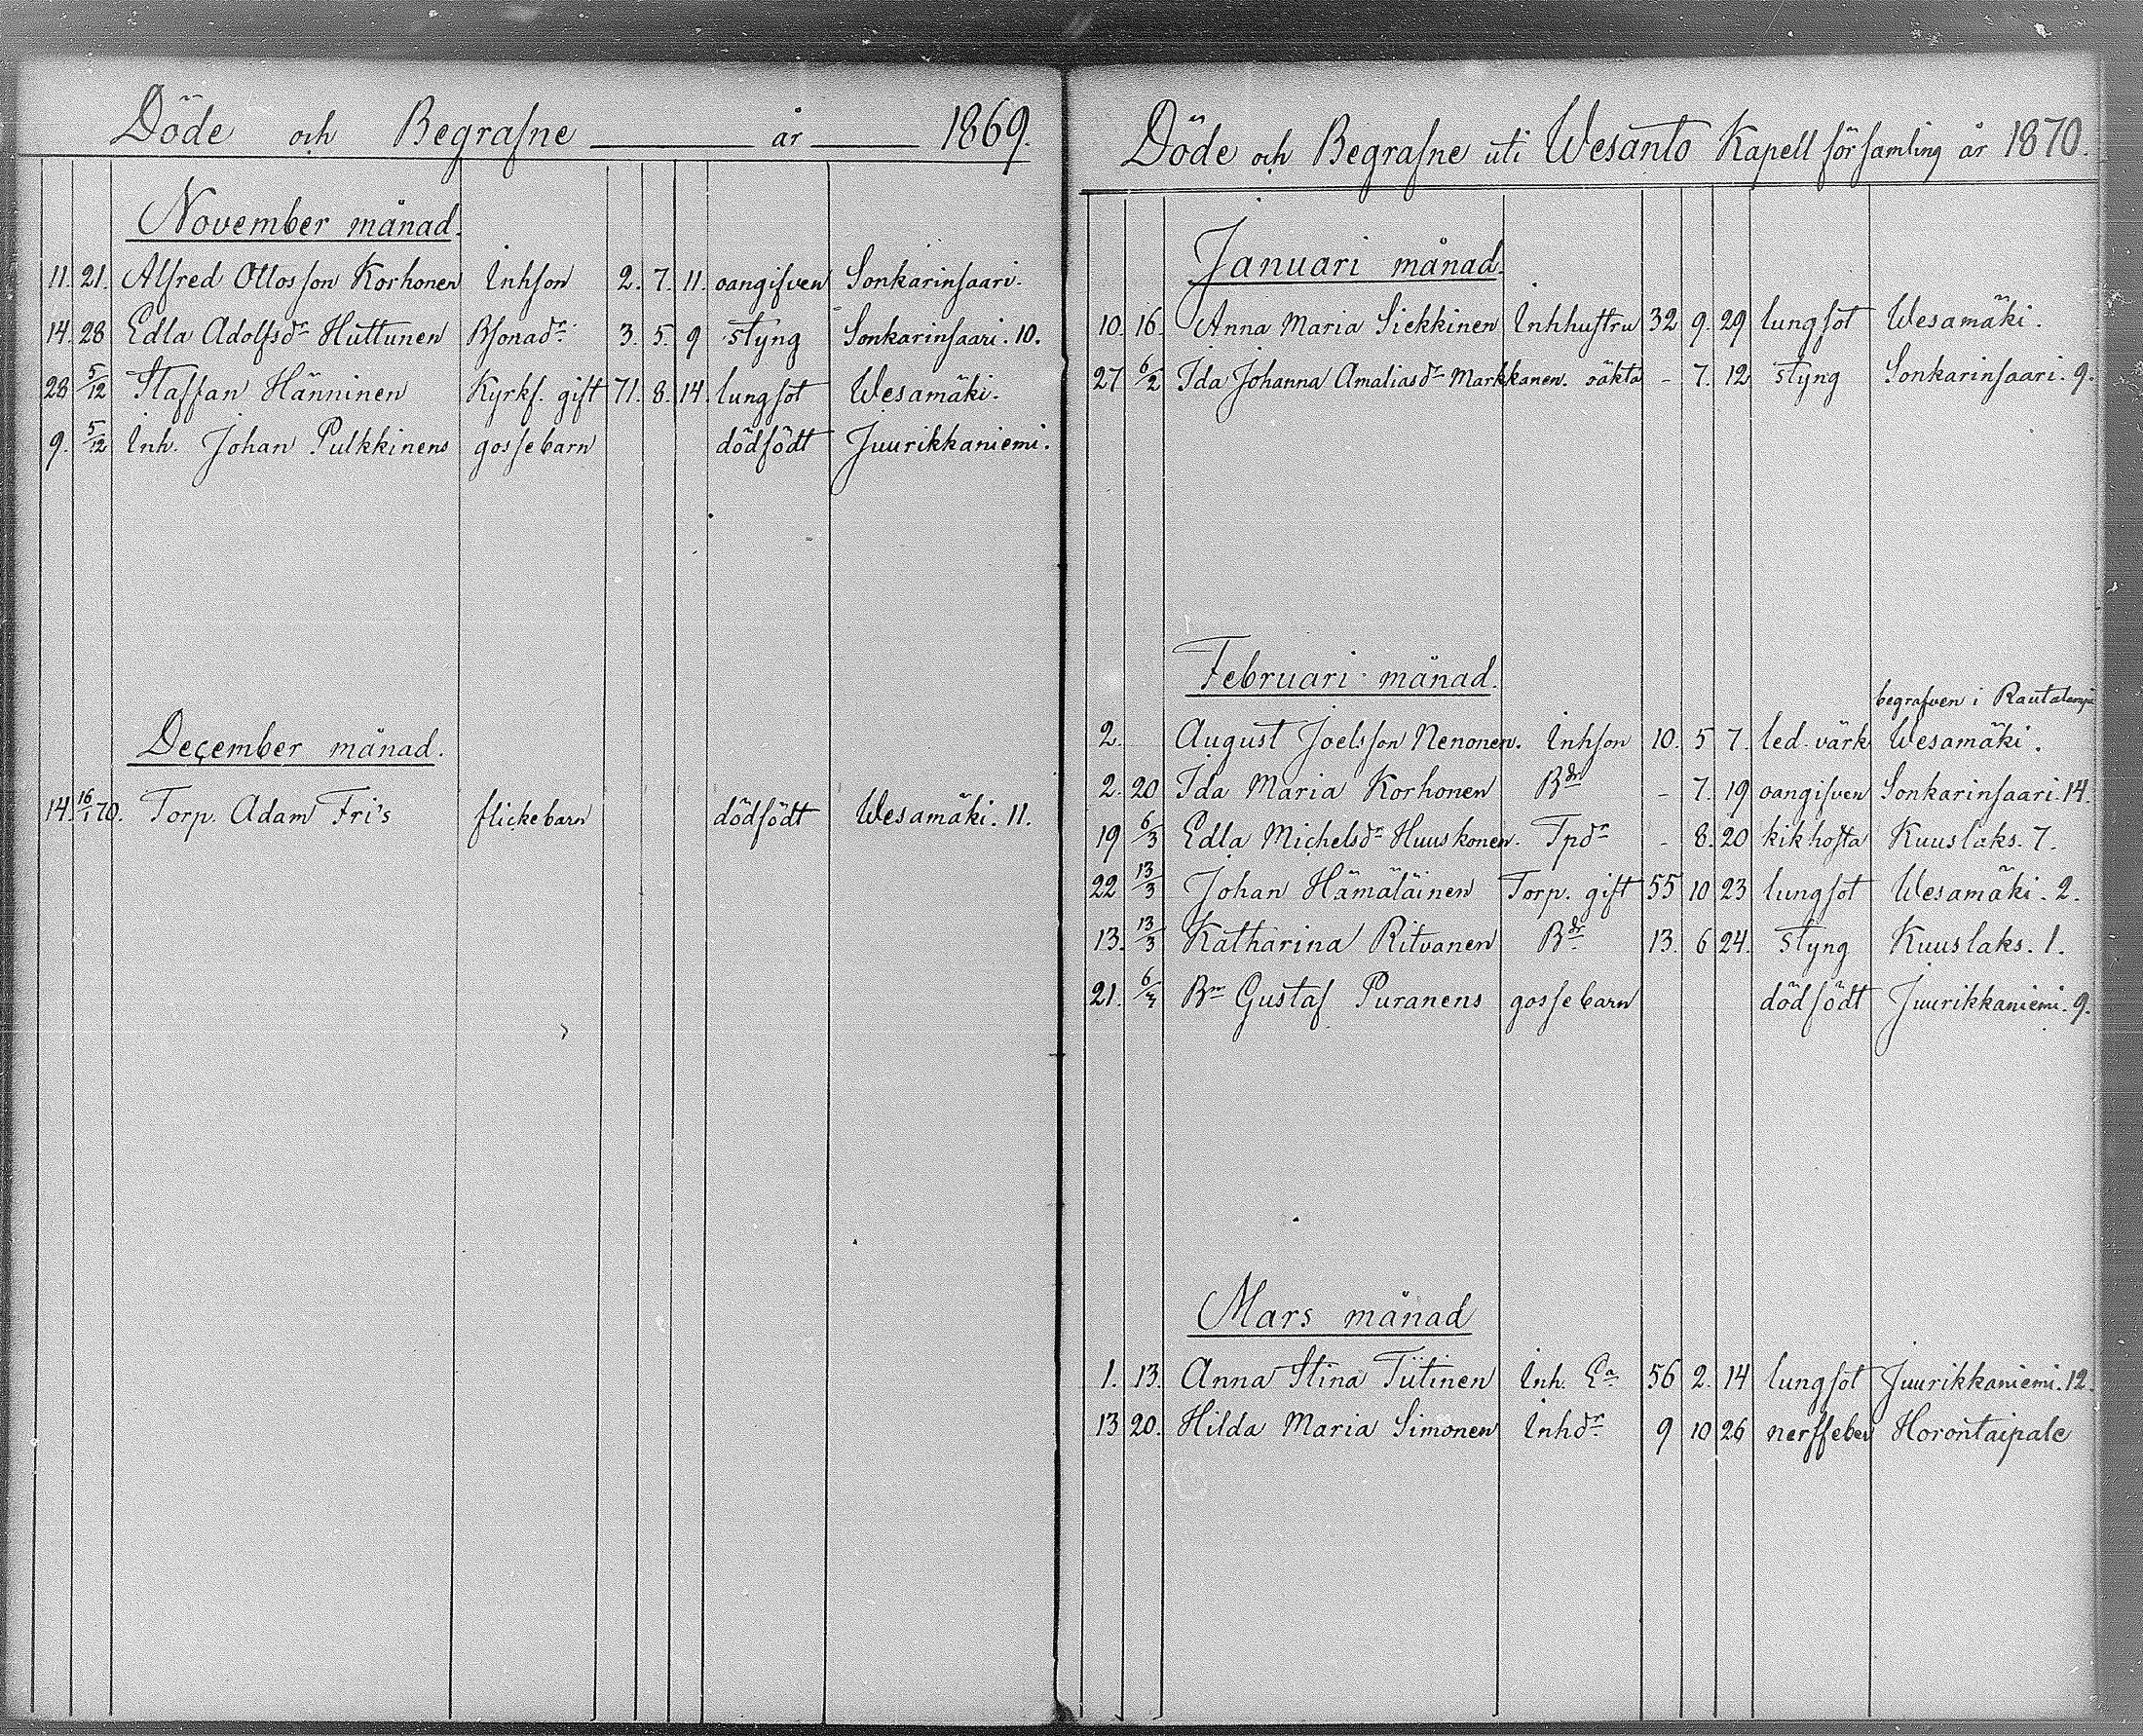 Döde och Begrafne år 1869.
November månad.
11. 21. Alfred Ottosson Korhonen Inhson 2. 7. 11. oangifven Sonkarinsaari.
14. 28 Edla Adolfsdr Huttunen Bsonadr. 3. 5. 9 styng Sonkarinsaari. 10.
28 5/12 Staffan Hänninen Kyrkf. gift 71. 8. 14. lungsot Wesamäki.
9. 5/12 Inh. Johan Pulkkinens gossebarn dödfödt Juurikkaniemi.
December månad.
14. 16/1 70. Torp. Adam Fri's flickebarn dödfödt Wesamäki. 11.
Döde och Begrafne uti Wesanto Kapellförsamling år 1870.
Januari månad.
10. 16. Anna Maria Siekkinen Inhhustru 32 9. 29 lungsot Wesamäki.
27 6/2 Ida Johanna Amaliasdr Markkanen. oäkta - 7. 12 styng Sonkarinsaari. 9.
Februari månad.
begrafven i Rautalampi
2. August Joelsson Nenonen. Inhson 10. 5 7. led-värk Wesamäki.
2. 20 Ida Maria Korhonen Bdr - 7. 19 oangifven Sonkarinsaari. 14.
19 6/3 Edla Michelsdr Huuskonen. Tpdr - 8. 20 kikhosta Kuuslaks. 7.
22 13/3 Johan Hämäläinen Torp. gift 55 10 23 lungsot Wesamäki. 2.
13. 13/3 Katharina Ritvanen Bdr. 13. 6 24. styng Kuuslaks. 1.
21. 6/3 Bn Gustaf Puranens gossebarn dödfödt Juurikkaniemi. 9.
Mars månad
1. 13. Anna Stina Tiitinen Inh. Ea 56 2. 14 lungsot Juurikkaniemi. 12.
13 20. Hilda Maria Simonen Inhdr. 9 10 26 nerffeber Horontaipale